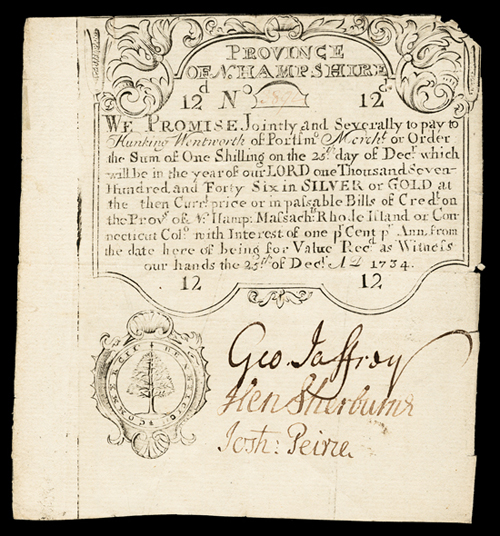 PROVINCE
OF N. HAMPSHIRE
12d No 12d.
WE PROMISE Jointly and Severally to pay to
Hunking Wentworth of Portsmo Mercht or Order
the Sum of One Shilling on the 25th day of Decr which
will be in the year of our LORD one Thousand Seven
Hundred and Forty Six in SILVER or GOLD at
the then Currt price or in passable Bills of Credt on
the Provs of N. Hamp: Massachts Rhode Island or Con-
necticut Colo with Interest of one pr Cent pr Ann. from
the date here of being for Value Recd as Witness
our hands the 25th of Decr AD 1734.
12 12
Geo. Jaffrey
Hen Sherburne
Josh: Peirce